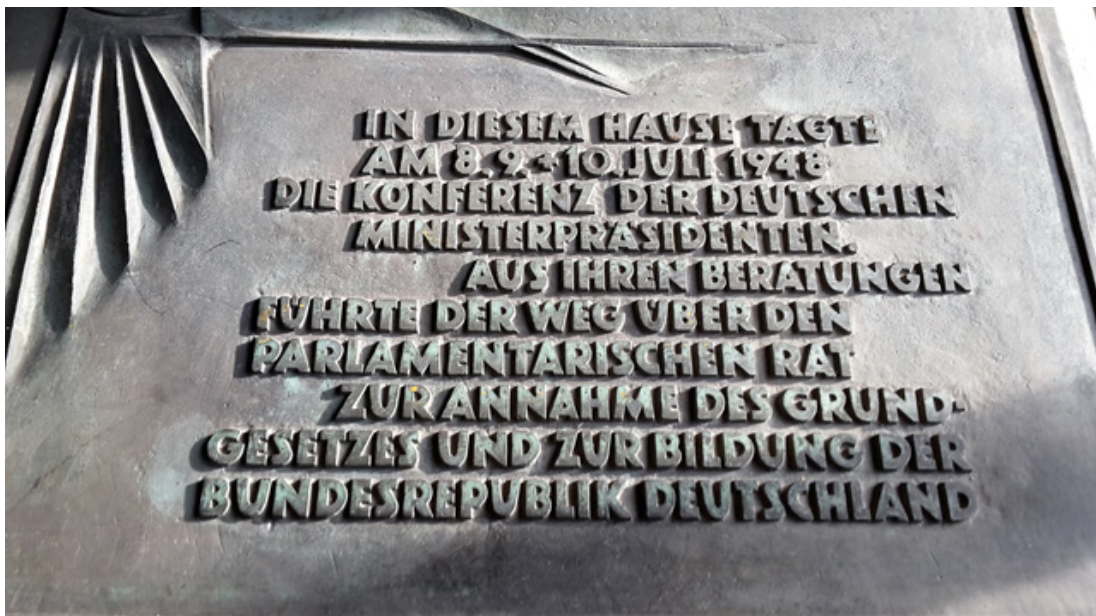 IN DIESEM HAUSE TAGTE
AM 8.9.+10.JULI 1948
DIE KONFERENZ DER DEUTSCHEN
MINISTERPRÄSIDENTEN.
AUS IHREN BERATUNGEN
FÜHRTE DER WEG ÜBER DEN
PARLAMENTARISCHEN RAT
ZUR ANNAHME DES GRUND-
GESETZES UND ZUR BILDUNG DER
BUNDESREPUBLIK DEUTSCHLAND